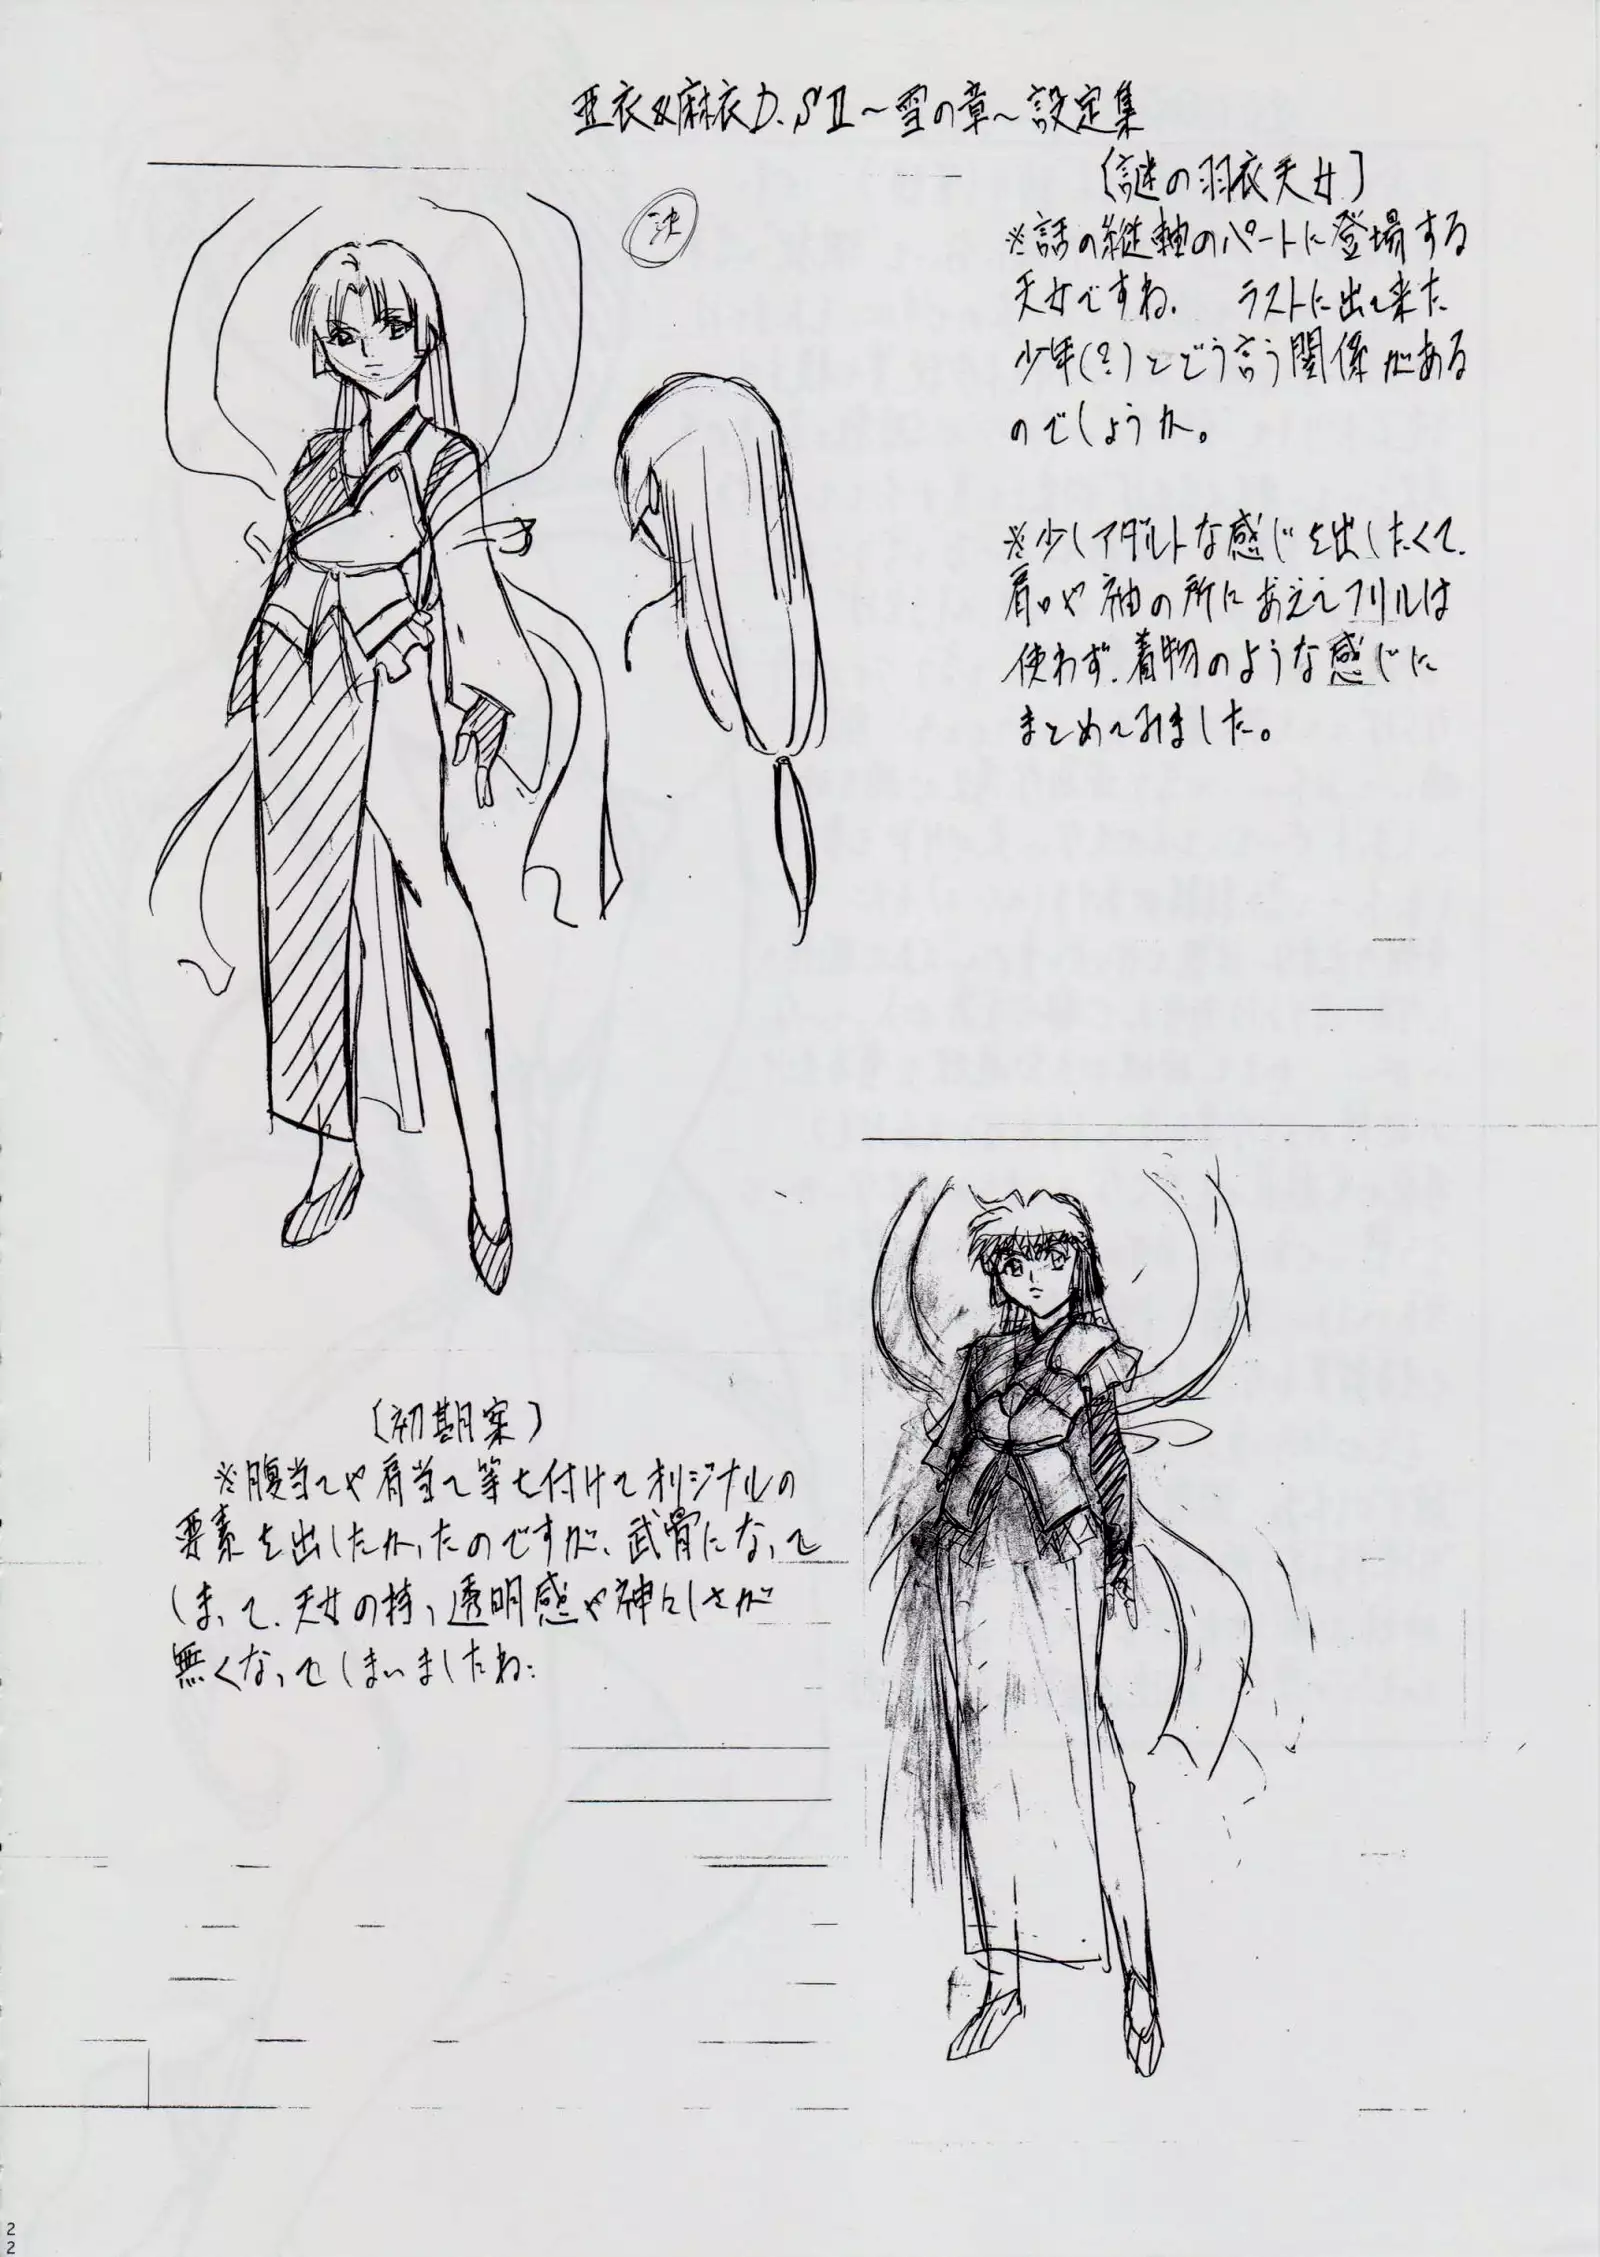 亜衣&麻衣D.SⅡ～雪の章～設定集
〔謎の羽衣天女〕
※話の縦軸のパートに登場する
天女ですね. ラストに出て来た
少年(?)とどう言う関係がある
のでしょうか。
決
※少しアダルトな感じを出したくて.
肩や袖の所にあえてフリルは
使わず.着物のような感じに
まとめてみました。
〔初期案〕
※腹当てや肩当て等を付けてオリジナルの
要素を出したかったのですが、武骨になって
しまって、天女の持つ透明感や神々しさが
無くなってしまいましたね…
22